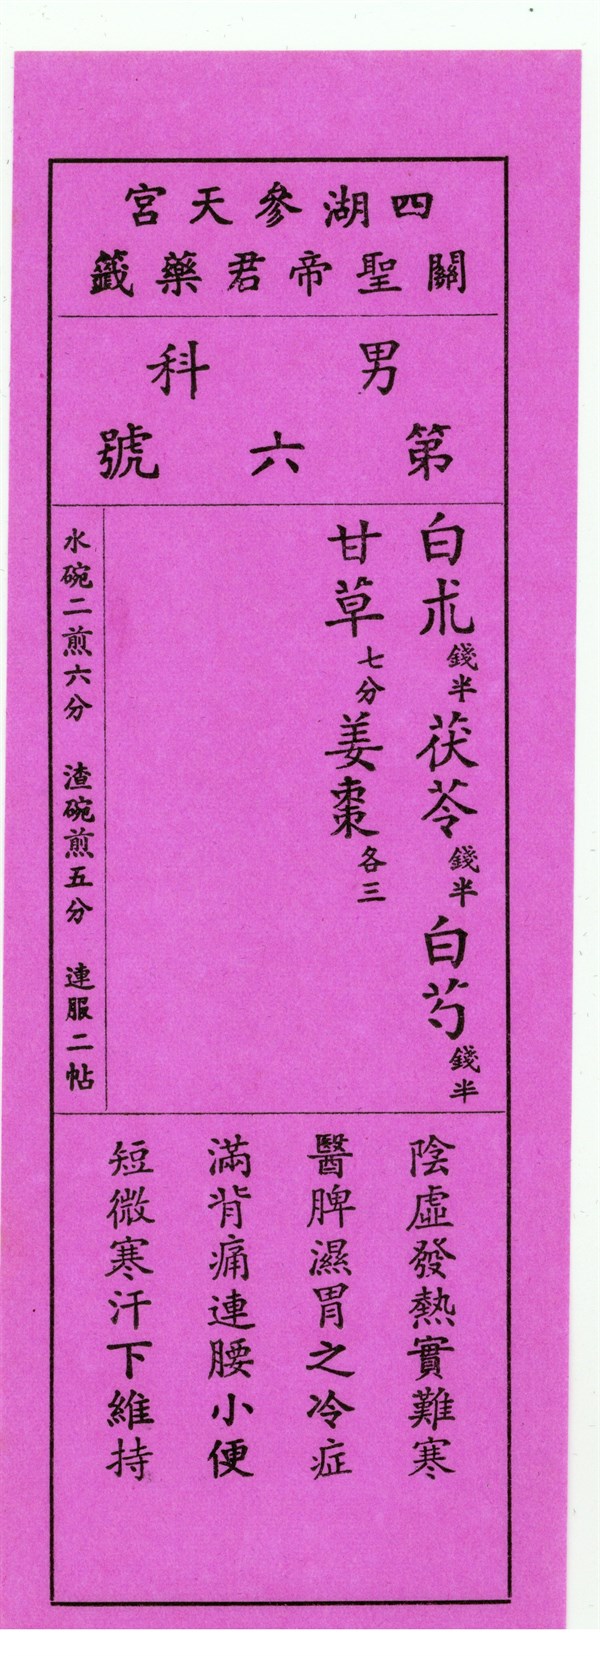 四湖參天宮
關聖帝君藥籤
男科
第六號
白朮錢半茯苓錢半白芍錢半
甘草七分姜棗各三
水碗二煎六分 渣碗煎五分 連服二帖
陰虛發熱實難寒
醫脾濕胃之冷症
滿背痛連腰小便
短微寒汗下維持